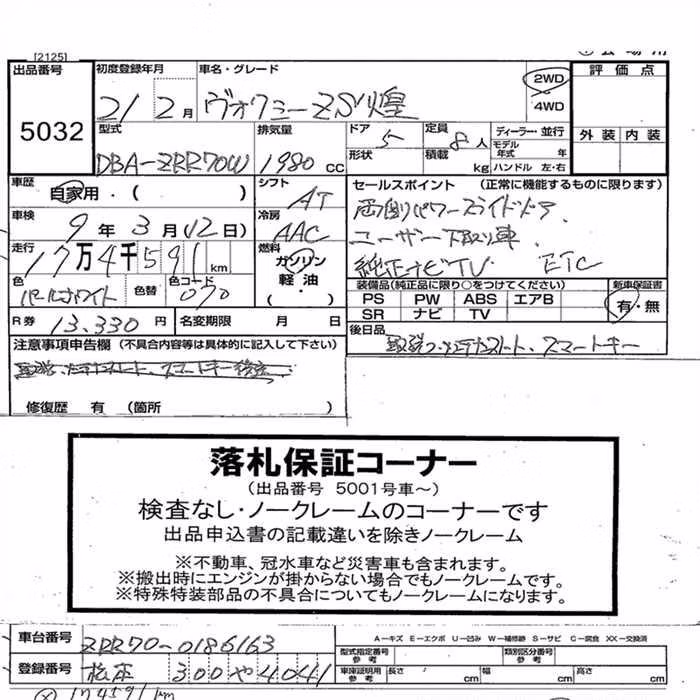 [2125]
出品番号 初度登録年月 車名・グレード 2WD 評価点
5032 21 2月 ヴォクシー ZS 煌 4WD
型式 排気量 ドア 定員 ディーラー・並行 外装 内装
5 8人 モデル年式 年
DBA-ZRR70W 1980cc 形状 積載 kg ハンドル 左・右
車歴 シフト セールスポイント (正常に機能するものに限ります)
自家用・( ) AT 両側パワースライドドア、
車検 冷房 ユーザー下取り車、
9年3月(12日) AAC 純正ナビTV ETC
走行 燃料
17万4千591km ガソリン
軽油
( )
色 色替 色コード
パールホワイト 070
装備品(純正品に限り○をつけてください) 新車保証書
PS PW ABS エアB 有・無
SR ナビ TV
R券 13,330円 名変期限 月 日 後日品
注意事項申告欄 (不具合内容等は具体的に記入して下さい)
スマートキー
修復歴 有 (箇所 )
落札保証コーナー
(出品番号 5001号車~)
検査なし・ノークレームのコーナーです
出品申込書の記載違いを除きノークレーム
※不動車、冠水車など災害車も含まれます。
※搬出時にエンジンが掛からない場合でもノークレームです。
※特殊特装部品の不具合についてもノークレームになります。
A-キズ E-エクボ U-凹み W-補修跡 S-サビ C-腐食 XX-交換済
車台番号 ZRR70-0186163 型式指定番号 参考 類別区分番号 参考
登録番号 松本 300 や 4041 車庫証明用 参考 長さ cm 幅 cm 高さ cm
174591km